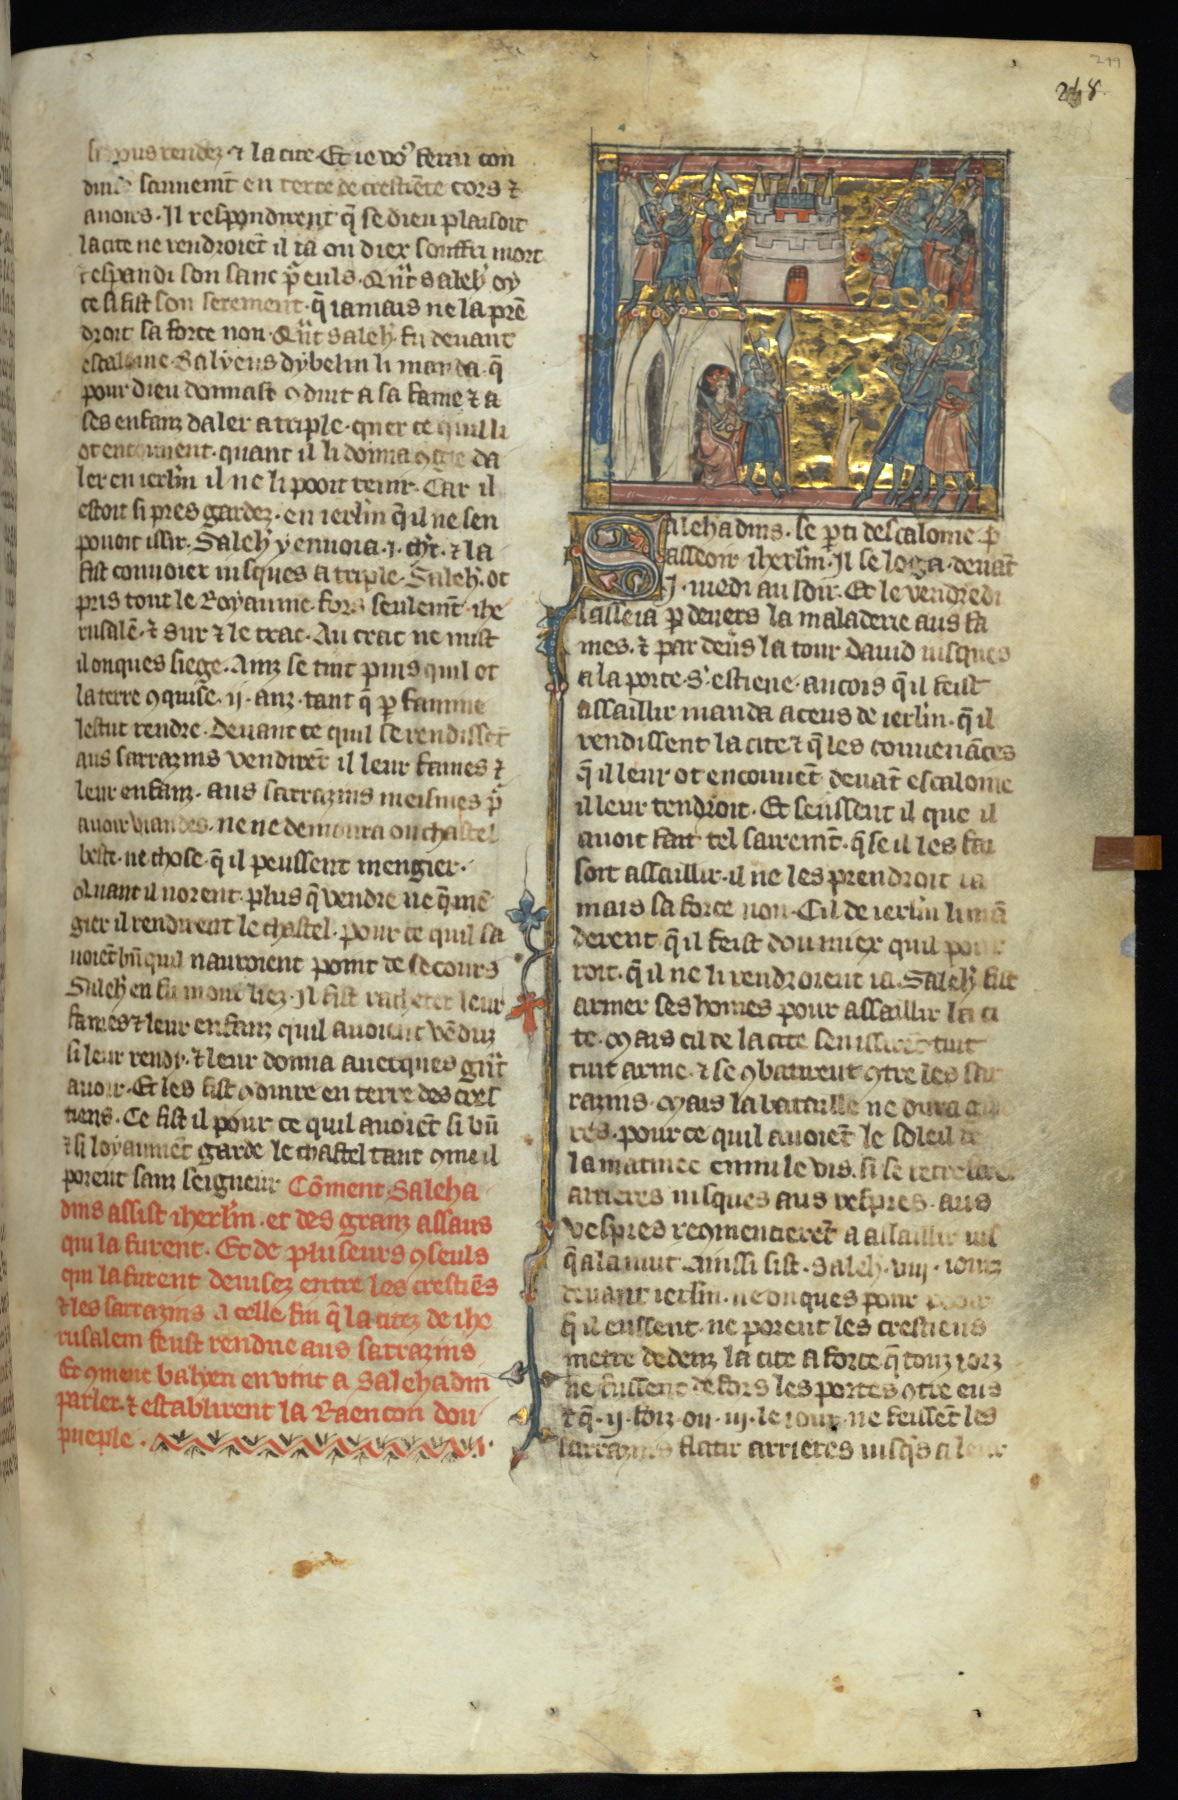 268
rendez ⁊ la cite. Et ie voꝰ ferai con
sauuemt̄ en terre de crestiēte cors ⁊
auoirs. Il respondirent q̄ se dieu plaisoit
la cite ne rendroiēt il ia ou diex souffri mort
⁊ espandi son sanc p̄ euls. Qn̄t saleh̄ oy
ce si fist son serement. q̄ iamais ne la prē
droit sa force non. Qn̄t saleh̄. fu deuant
escalone. Balyens dybelin li manda. q̄
pour dieu donnast ꝯduit a sa fame ⁊ a
ses enfanz daler a triple. quer ce quil li
ot enconuent. quant il li donna da
ler en ierlm̄ il ne li pooit tenir. Car il
estoit si pres gardez. en ierlm̄ q̄ il ne sen
pouoit issir. Saleh̄ y enuoia .i. chr̄. ⁊ la
fist conuoier iusques a triple. Saleh̄. ot
pris tout le Royaume. fors seulemt̄. ihe
rusalē. ⁊ Sur ⁊ le crac. Au crac ne mist
il onques siege. Ainz se tint puis quil ot
la terre ꝯquise. ij. anz. tant q̄ p̄ famine
lestut rendre. Deuant ce quil se rendissēt
aus sarrazins vendirēt il leur fames ⁊
leur enfanz. aus sarrazins meismes p̄
auoir viandes. ne ne demoura ou chastel
beste. ne chose. q̄ il peussent mengier.
Quant il norent. plus q̄ vendre ne q̄ mē
gier il rendirent le chastel. pour ce quil sa
uoiēt bn̄ quil nauroient point de secours
Saleh̄ en fu mout liez. Il fist racheter leur
fames ⁊ leur enfanz quil auoient vēduz
si leur rendi. ⁊ leur donna auecques gn̄t
auoir. Et les fist ꝯduire en terre des cres
tiens. Ce fist il pour ce quil auoiēt si bn̄
⁊ si loyaumēt garde le chastel tant ꝯme il
porent sanz seigneur Cōment Saleha
dins assist iherlm̄. et des granz assaus
qui la furent. Et de pluseurs ꝯseuls
qui la furent deuisez entre les crestiēs
⁊ les sarrazins a celle fin q̄ la citez de ihe
rusalem feust rendue aus sarrazins
Et ꝯment balyen en vint a Salehadin
parler. ⁊ establirent la Raencon dou
pueple.
Salehadins. se p̄ti descalone p̄
asseoir iherlm̄. Il se loga. deuāt
.I. iuedi au soir. Et le vendredi
lasseia p̄ deuers la maladerie aus fa
mes. ⁊ par deūs la tour dauid iusques
a la porte. S̄. estiene. ancois q̄ il feist
assaillir manda a ceus de ierlm̄. q̄ il
rendissent la cite ⁊ q̄ les conuenāces
q̄ il leur ot encouuēt deuāt escalone
il leur tendroit. Et seussent il que il
auoit fait tel sairemt̄. q̄ se il les fai
soit assaillir. il ne les prendroit ia
mais sa force non. Cil de ierlm̄ li mā
derent q̄ il feist dou miex quil
roit. q̄ il ne li rendroient ia. Saleh̄ fist
armer ses homes pour assaillir la ci
te. Mais cil de la cite sen issirēt tuit
tuit arme. ⁊ se ꝯbatirent ꝯtre les sar
razins. Mais la bataille ne dura
res. pour ce quil auoiēt le soleil de
la matinee enmi le vis. si se
arrieres iusques aus vespres. aus
vespres reꝯmencierēt a assaillir ius
q̄ a la nuit. Ainssi fist. Saleh̄. viij. iours
deuant ierlm̄. ne onques pour
q̄ il eussent. ne porent les crestiens
metre dedenz la cite a force q̄ touz iorz
ne fussent defors les portes ꝯtre eus
⁊ q̄. ij. foiz. ou. iij. le iour. ne feissēt les
sarrazins flatir arrieres iusq̄s a